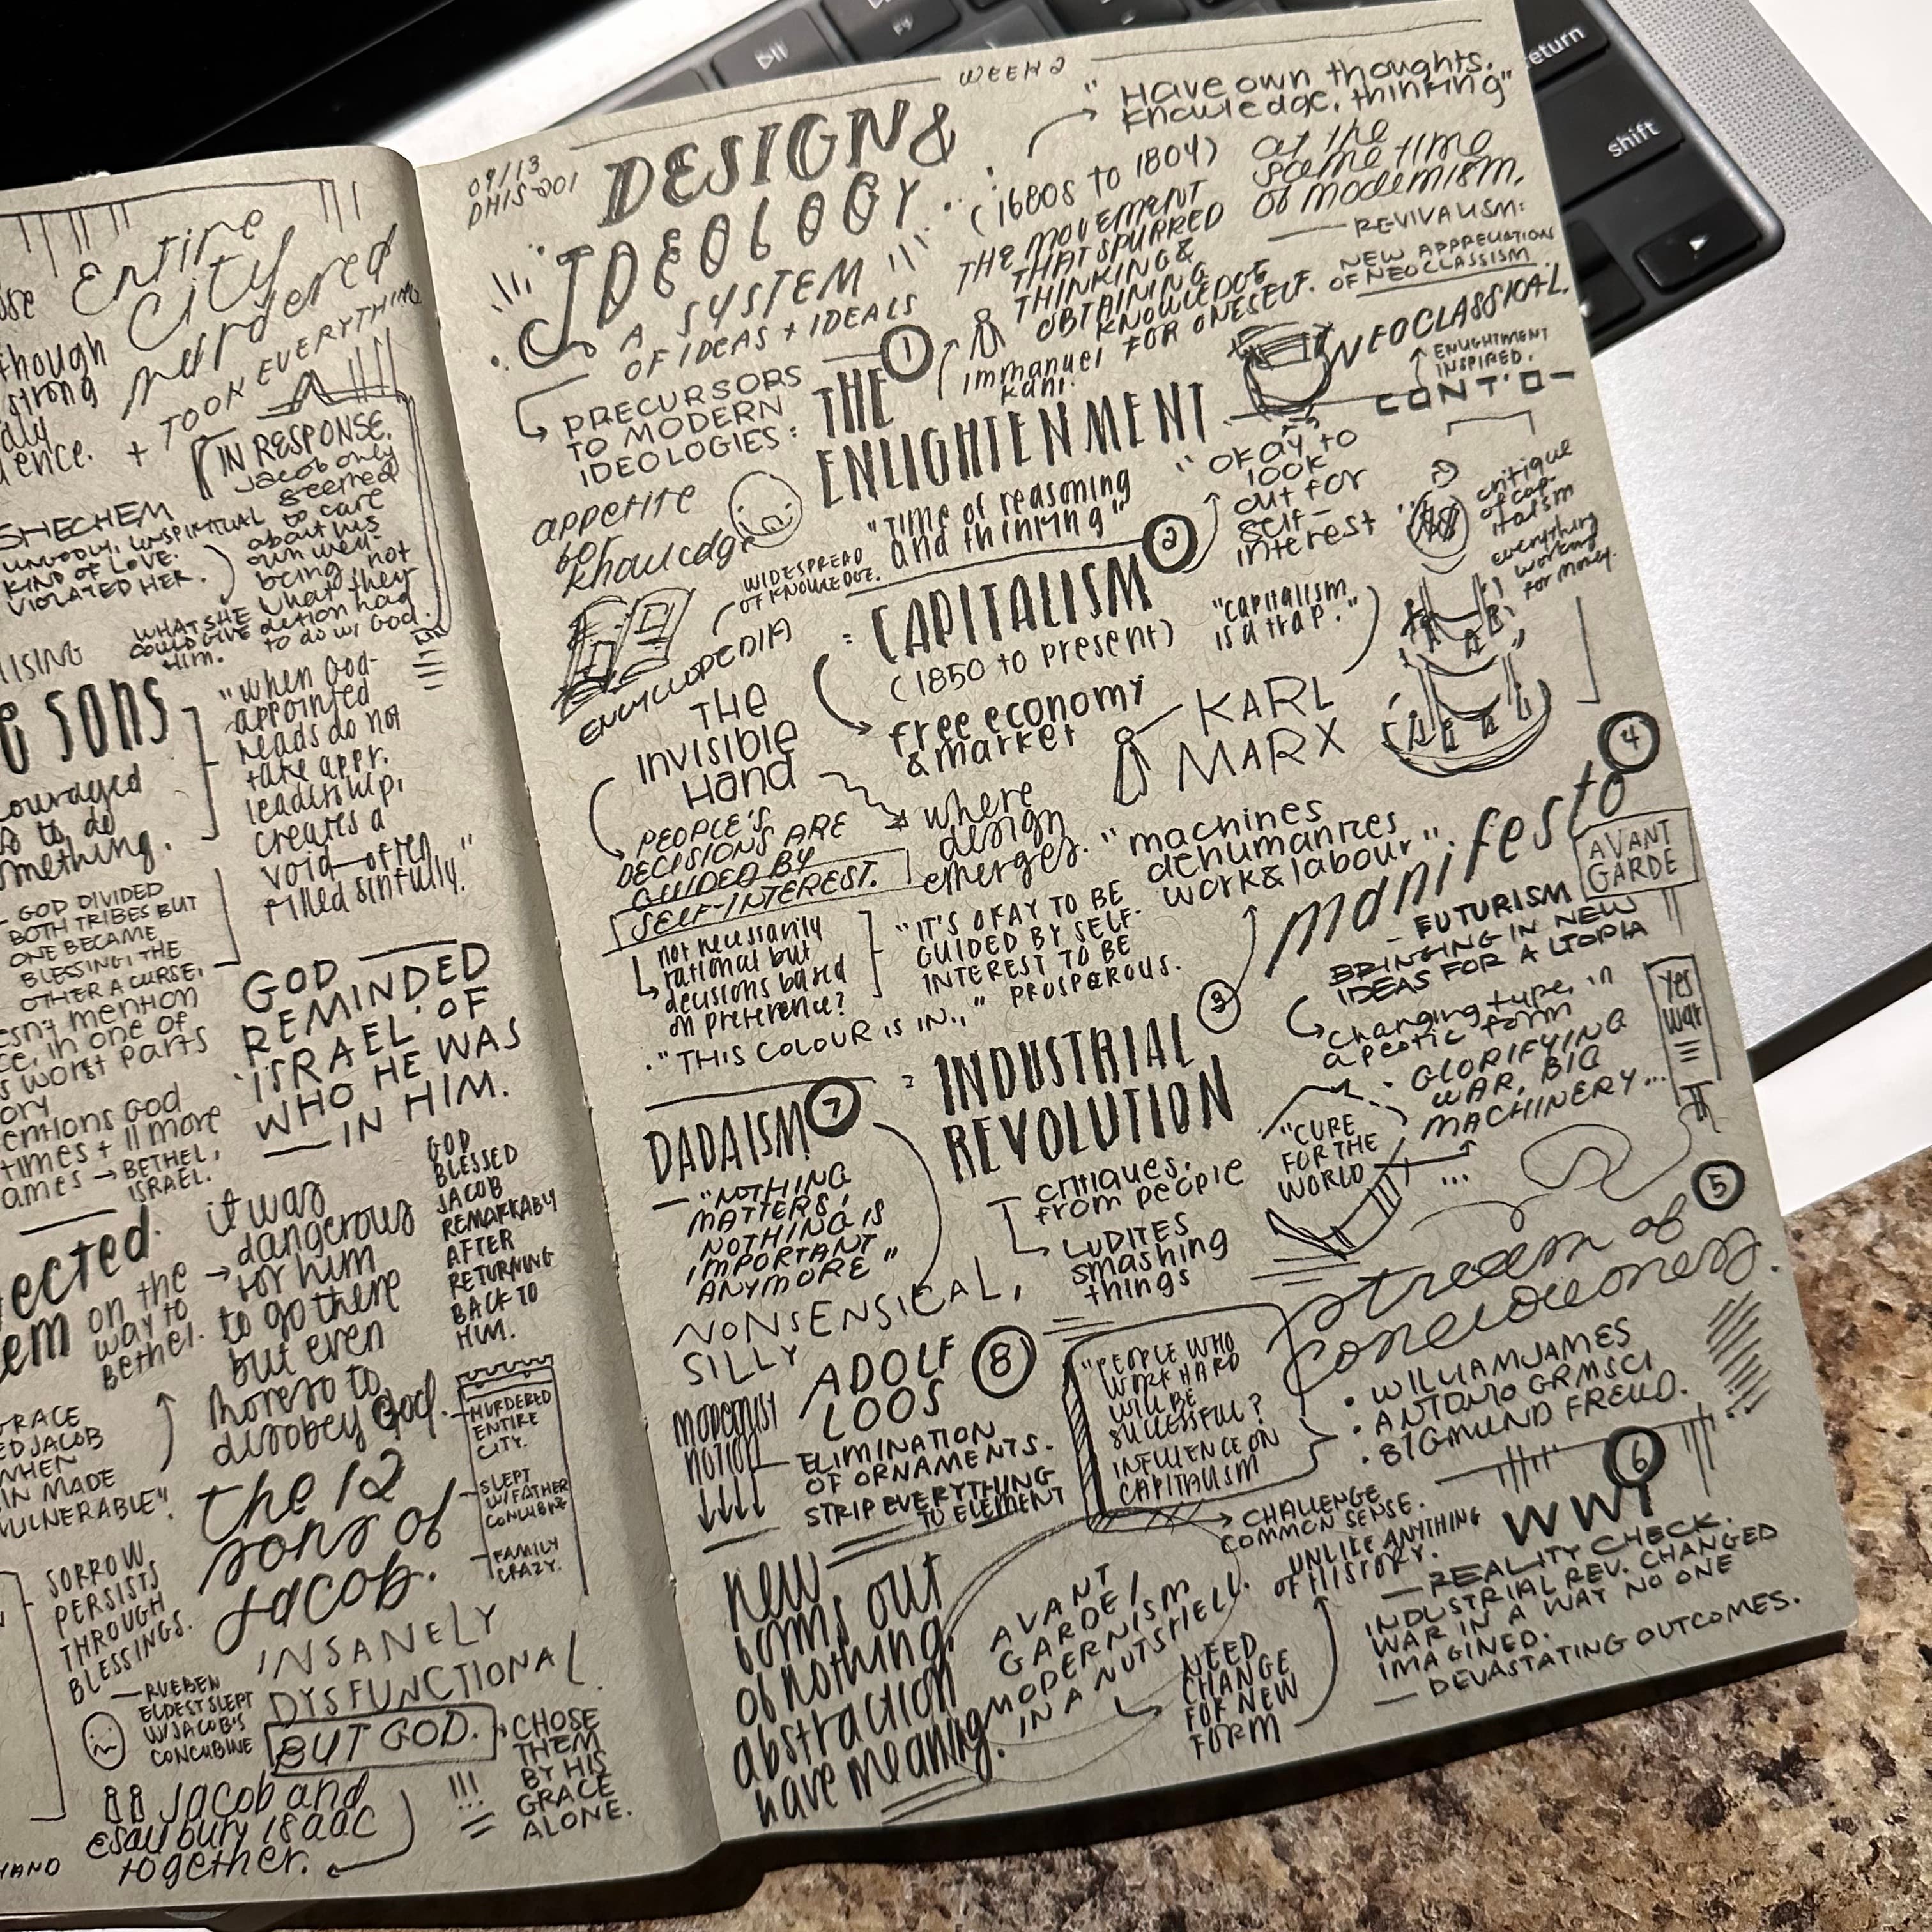 return
shift
use Entire
City
murdered
+ TOOK EVERYTHING
though
strong
IN RESPONSE,
Jacob only
seemed
to care
about his
own well-
being not
what their
action had
to do w/ God.
SHECHEM
UNGODLY, UNSPIRITUAL
KIND OF LOVE.
VIOLATED HER.
WHAT SHE
COULD GIVE
HIM.
SONS
"when God-
appointed
heads do not
take appr.
leadership,
creates a
void—often
filled sinfully."
to do
something.
GOD DIVIDED
BOTH TRIBES BUT
ONE BECAME
BLESSING, THE
OTHER A CURSE.
mention
in one of
worst parts
GOD
REMINDED
ISRAEL OF
WHO HE WAS
— IN HIM.
times + 11 more
→ BETHEL,
ISRAEL.
GOD
BLESSED
JACOB
REMARKABY
AFTER
RETURNING
BACK TO
HIM.
on the
way to
Bethel.
it was
→ dangerous
for him
to go there
but even
moreso to
disobey God.
JACOB
WHEN
IN MADE
VULNERABLE"
the 12
sons of
Jacob.
MURDERED
ENTIRE
CITY.
SLEPT
W/ FATHER
CONCUBINE
FAMILY
CRAZY.
SORROW
PERSISTS
THROUGH
BLESSINGS.
INSANELY
DYSFUNCTIONAL
— RUEBEN
ELDEST SLEPT
W/ JACOB'S
CONCUBINE
BUT GOD.
CHOSE
THEM
BY HIS
GRACE
ALONE.
!!!
Jacob and
esau bury isaac
together.
WEEK 2
09/13
DHIS-201
DESIGN &
IDEOLOGY
A SYSTEM
OF IDEAS + IDEALS
"Have own thoughts.
knowledge, thinking"
(1680s to 1804)
THE MOVEMENT
THAT SPURRED
THINKING &
OBTAINING
KNOWLEDGE
FOR ONESELF.
immanuel
kant.
at the
same time
of modernism.
— REVIVALISM:
NEW APPRECIATION
OF NEOCLASSISM
NEOCLASSICAL.
ENLIGHTMENT
INSPIRED.
CONT'D—
PRECURSORS
TO MODERN
IDEOLOGIES:
1
THE
ENLIGHTENMENT
"Time of reasoning
and thinking"
appetite
for
knowledge
WIDESPREAD
OF KNOWLEDGE.
ENCYCLOPEDIA
2
: CAPITALISM
(1850 to present)
free economy
& market
"okay to
look
out for
self-
interest
critique
of cap-
italism
everything
working
for money.
"capitalism
is a trap."
KARL
MARX
The
Invisible
Hand
PEOPLE'S
DECISIONS ARE
GUIDED BY
SELF-INTEREST.
where
design
emerges.
not necessarily
rational but
decisions based
on preference?
"IT'S OKAY TO BE
GUIDED BY SELF-
INTEREST TO BE
PROSPEROUS.
"THIS COLOUR IS IN.."
"machines
dehumanizes
work & labour".
3
: INDUSTRIAL
REVOLUTION
critiques,
from people
LUDITES
smashing
things
4
manifesto
AVANT
GARDE
- FUTURISM
BRINGING IN NEW
IDEAS FOR A UTOPIA
changing type, in
a poetic form
• GLORIFYING
WAR, BIG
MACHINERY...
yes
war
"CURE
FOR THE
WORLD
...
5
stream of
conciousness.
• WILLIAM JAMES
• ANTONIO GRMSCI
• SIGMUND FREUD.
"PEOPLE WHO
WORK HARD
WILL BE
SUCCESSFUL?
INFLUENCE ON
CAPITALISM
CHALLENGE
COMMON SENSE.
6
WWI
— REALITY CHECK.
INDUSTRIAL REV. CHANGED
WAR IN A WAY NO ONE
IMAGINED.
— DEVASTATING OUTCOMES.
UNLIKE ANYTHING
OF HISTORY.
7
DADAISM
— "NOTHING
MATTERS,
NOTHING IS
IMPORTANT
ANYMORE"
NONSENSICAL,
SILLY
8
ADOLF
LOOS
modernist
notion
— ELIMINATION
OF ORNAMENTS.
STRIP EVERYTHING
TO ELEMENT
new
forms out
of nothing.
abstraction
have meaning.
AVANT
GARDE/
MODERNISM
IN A NUTSHELL.
NEED
CHANGE
FOR NEW
FORM